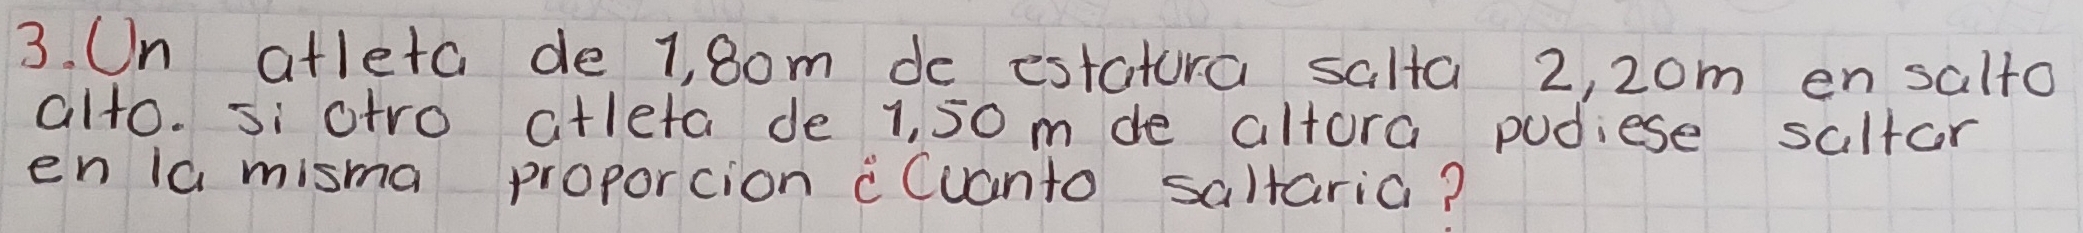 3. Un atleta de 1,80m de estatura salta 2,20m en salto
alto. si otro atleta de 1,50 m de altura pudiese saltar
en la misma proporcion ¿Cuanto saltaria?